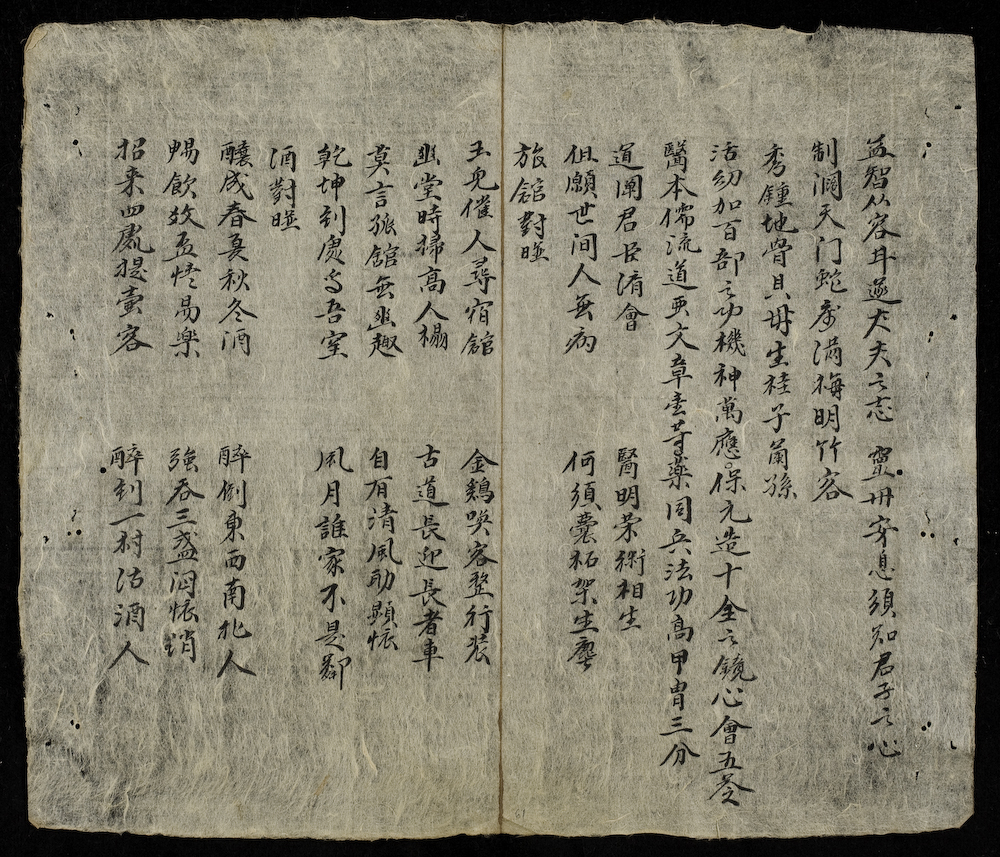 益智从容耳遂大夫之志 灵丹安息須知君子之心
制澗天门蛇床滿梅明竹客
秀鍾地骨貝母生桂子蘭孫
活幼加百部之功機神萬應保元造十全之鏡心會五苓
醫本儒流道要文章壹等藥同兵法功高甲胄三分
道闡君臣淆會 醫明榮術相生
但願世间人無病 何須囊祏架生塵
旅舘對聯
玉兔催人尋宿舘 金鷄唤客整行装
幽堂時掃高人榻 古道長迎長者車
莫言旅舘無幽趣 自有清風助顕懷
乾坤到處為吾室 風月誰家不是鄰
酒對聯
釀成春夏秋冬酒 醉倒東西南北人
暢飲效盃 易樂 強吞三盞悶懷銷
招来四處提壺客 醉到一村沽酒人